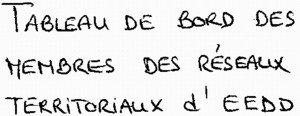 TABLEAU DE BORD DES
MEMBRES DES RÉSEAUX
TERRITORIAUX d'EEDD